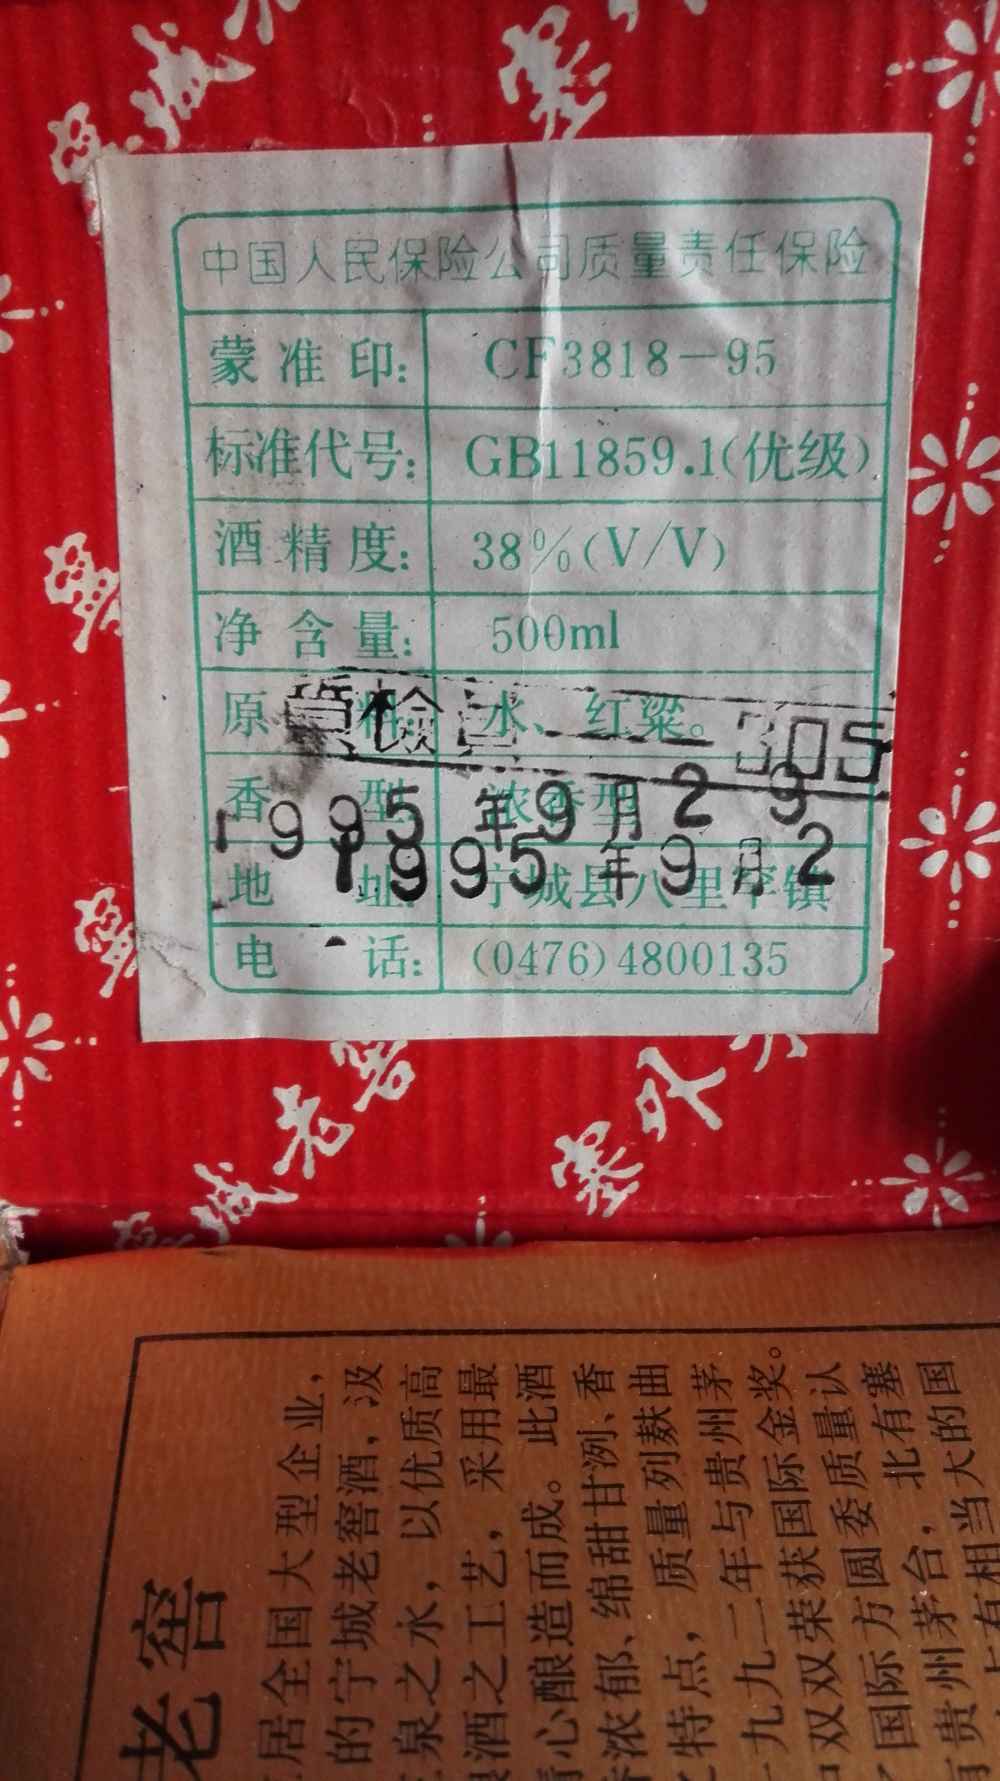 中国人民保险公司质量责任保险
蒙准印： CF3818－95
标准代号： GB11859.1（优级）
酒精度： 38%（V/V）
净含量： 500ml
原料 水、红粱。
质检 305
香型 浓香型
1995年9月29
1995年9月2
地址 宁城县八里罕镇
电话： （0476）4800135
宁城老窖
塞外
老窖
居全国大型企业，
的宁城老窖酒，汲
泉之水，以优质高
酒之工艺，采用最
心酿造而成。此酒
浓郁、绵甜甘洌、香
特点，质量列麸曲
九九二年与贵州茅
双双荣获国际金奖。
国际方圆委质量认
贵州茅台，北有塞
有相当大的国